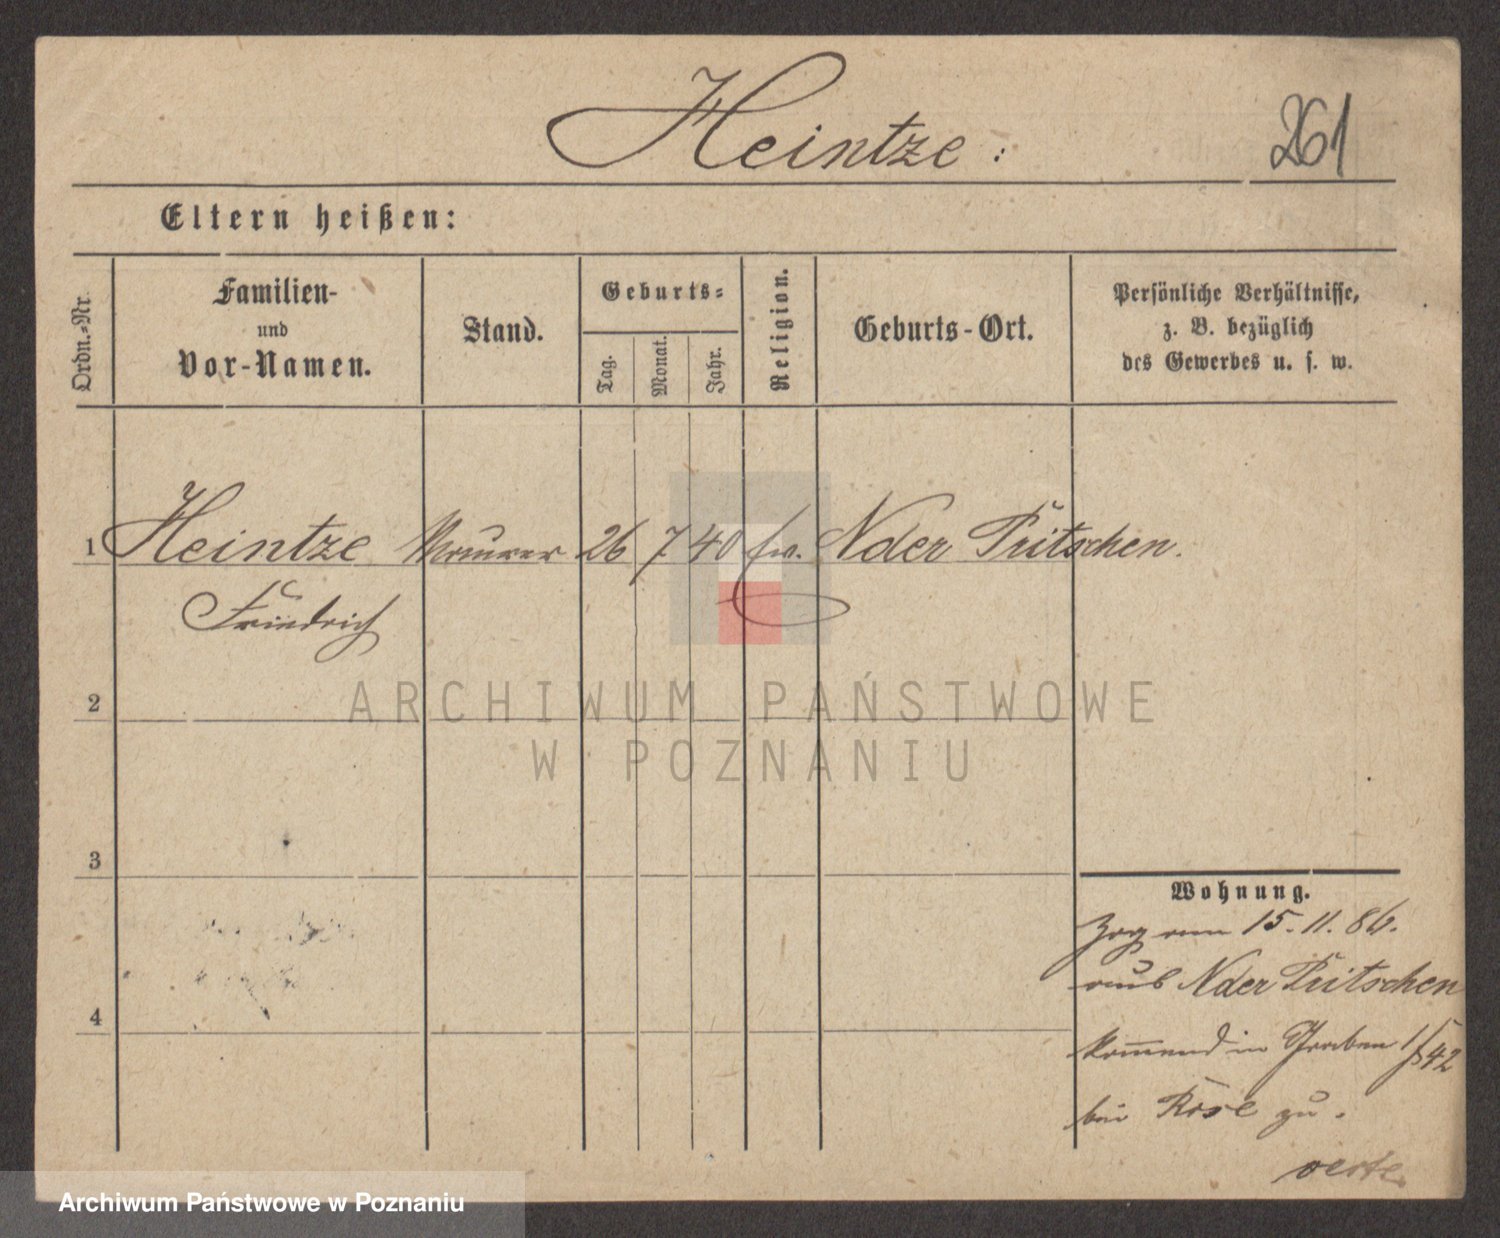 Heintze :
261
Eltern heißen:
Ordn.-Nr.
Familien-
und
Vor-Namen.
Stand.
Geburts-
Tag.
Monat.
Jahr.
Religion.
Geburts-Ort.
Persönliche Verhältnisse,
z. B. bezüglich
des Gewerbes u. s. w.
1 Heintze Maurer 26 7 40 ev. Nder Pritschen.
Friedrich
2
3
4
Wohnung.
Zog am 15. 11. 86.
aus Nder Pritschen
kommend in Graben 42
bei Rose zu.
ARCHIWUM PAŃSTWOWE
W POZNANIU
Archiwum Państwowe w Poznaniu